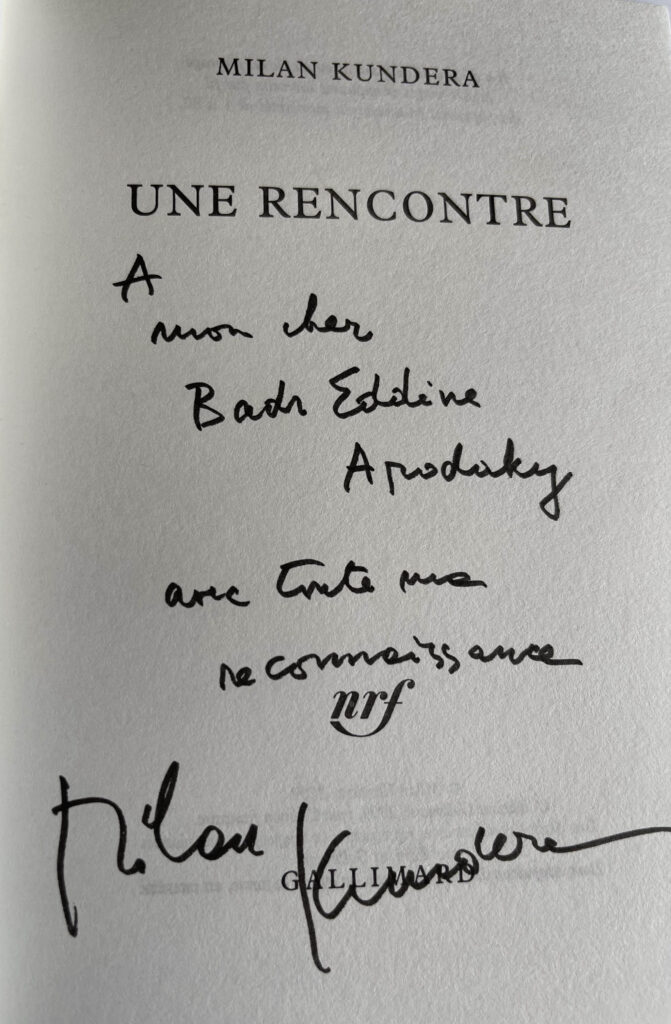 MILAN KUNDERA
UNE RENCONTRE
A
mon cher
Badr Eddine
Arodaky
avec toute ma
reconnaissance
nrf
Milan Kundera
GALLIMARD